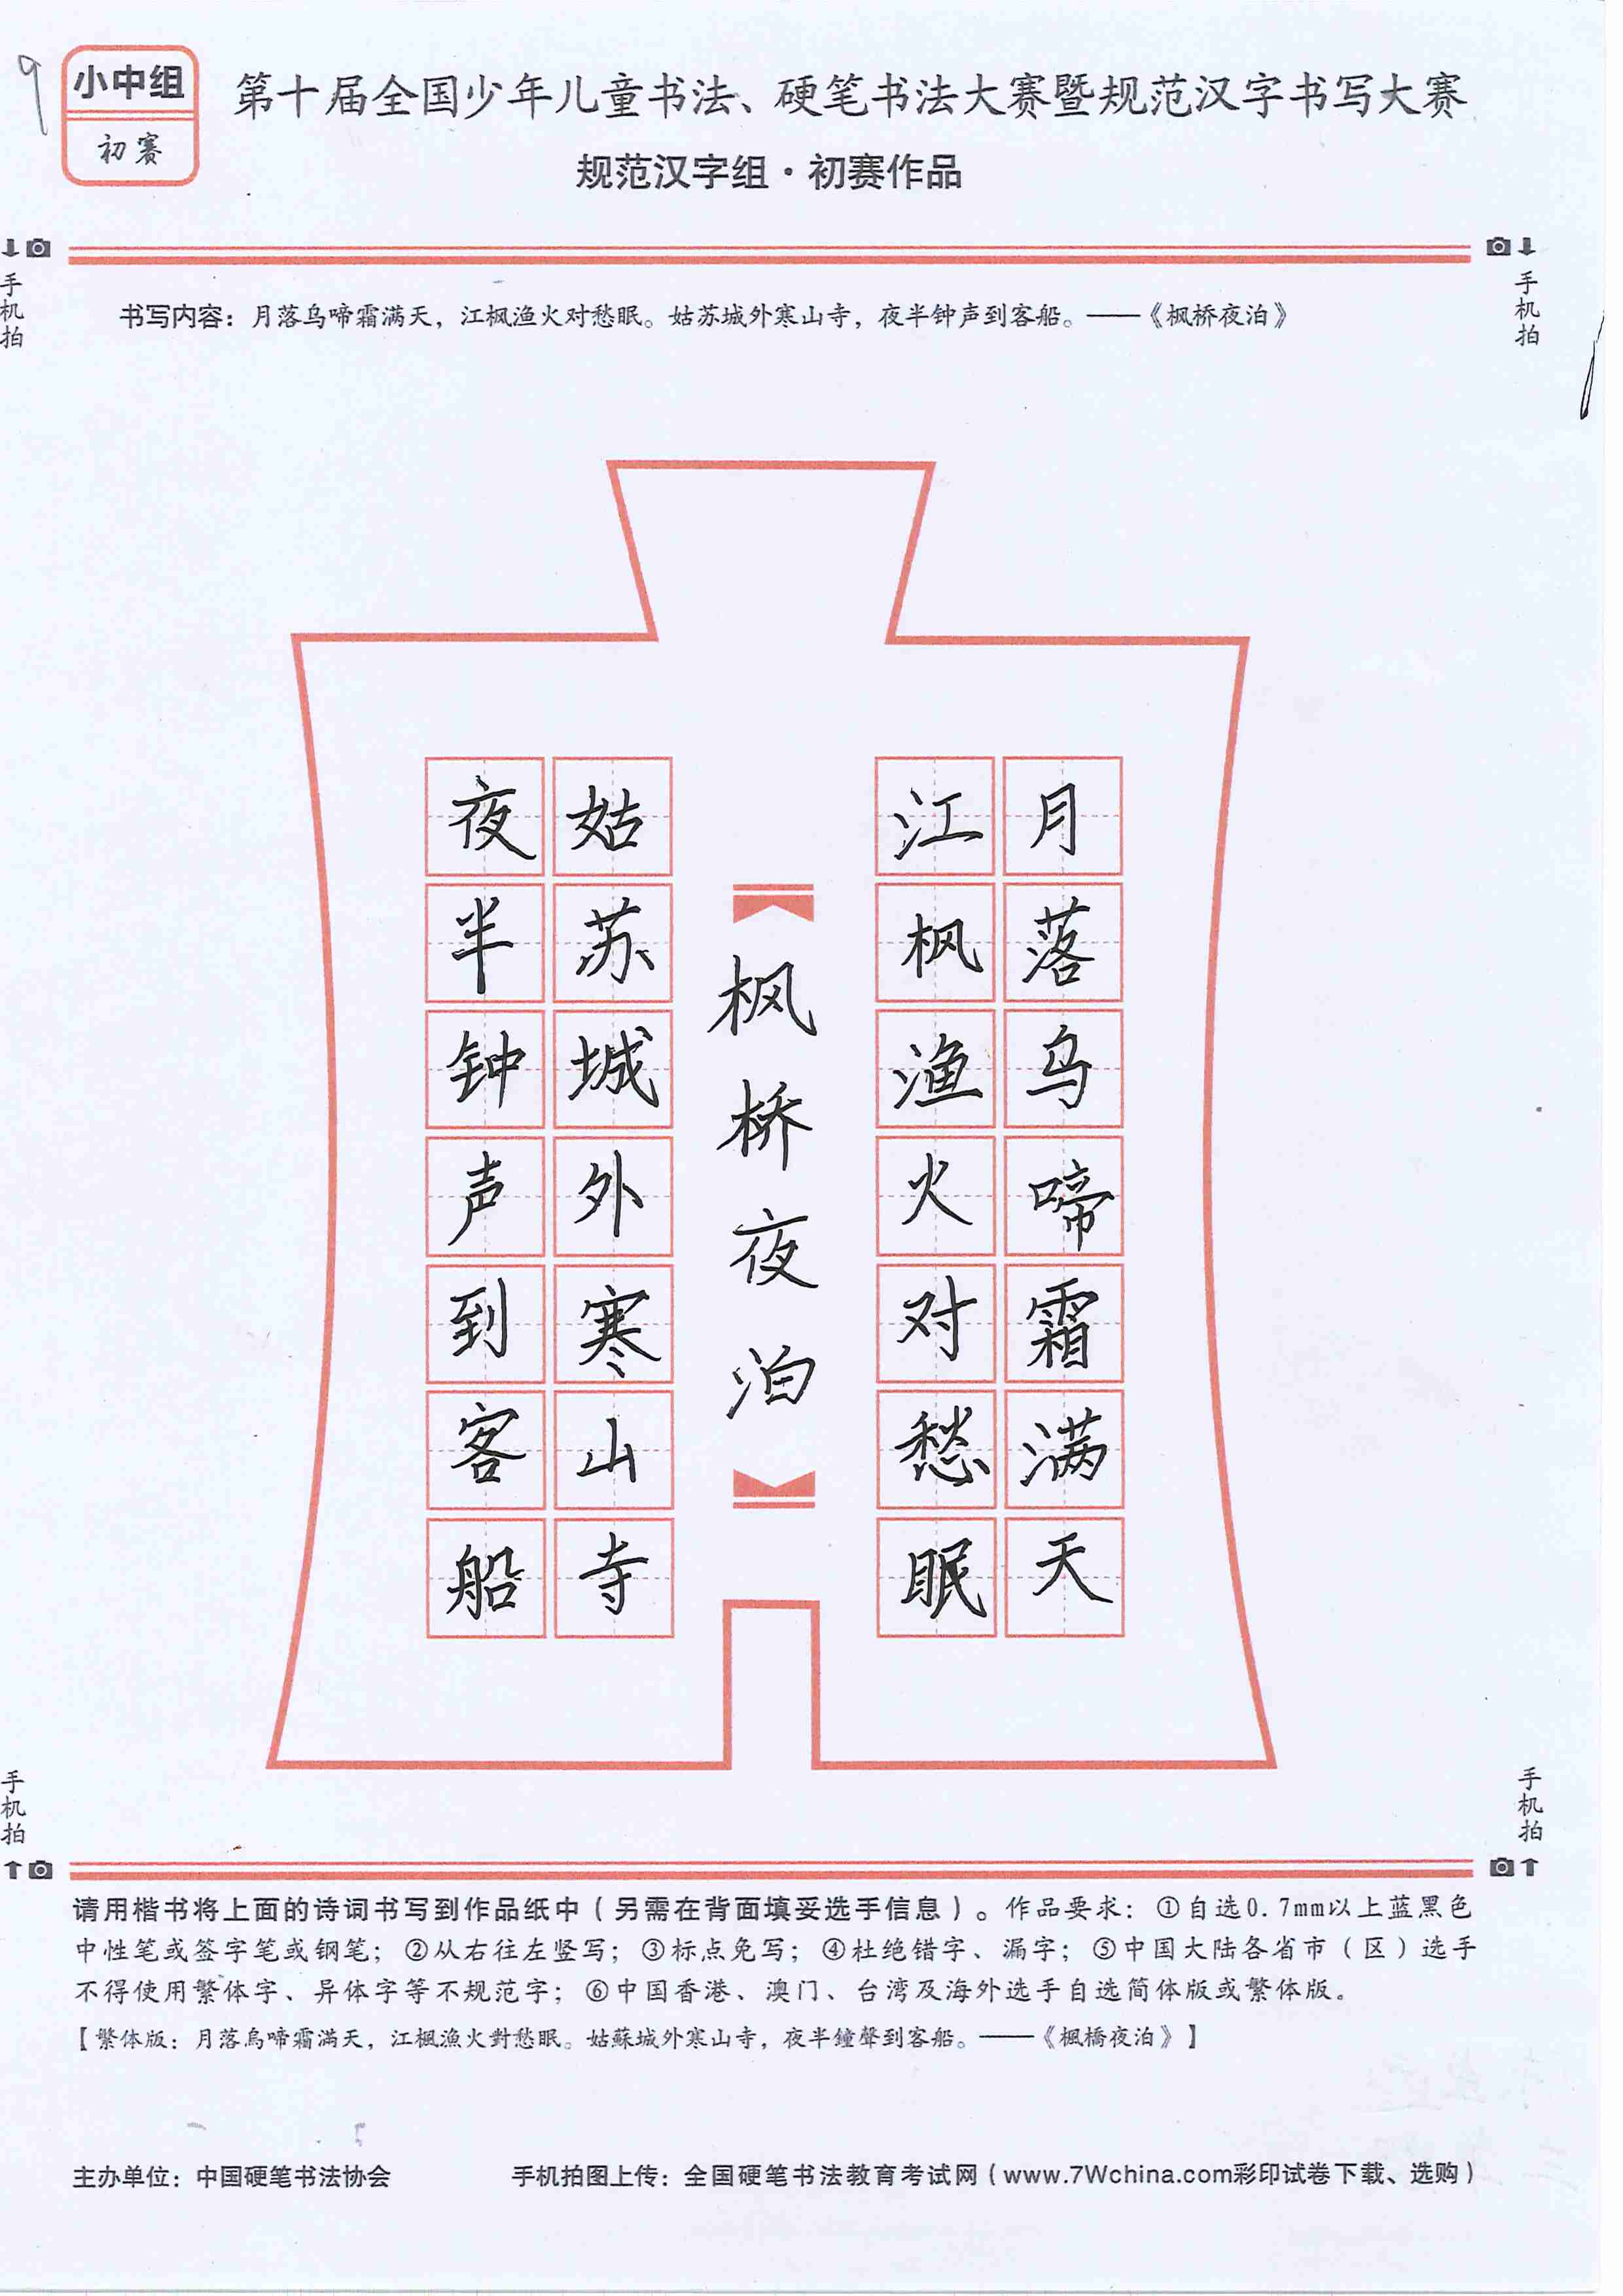 9
小中组
初赛
第十届全国少年儿童书法、硬笔书法大赛暨规范汉字书写大赛
规范汉字组·初赛作品
手机拍
手机拍
书写内容：月落乌啼霜满天，江枫渔火对愁眠。姑苏城外寒山寺，夜半钟声到客船。——《枫桥夜泊》
月落乌啼霜满天
江枫渔火对愁眠
《枫桥夜泊》
姑苏城外寒山寺
夜半钟声到客船
手机拍
手机拍
请用楷书将上面的诗词书写到作品纸中（另需在背面填妥选手信息）。作品要求：①自选0.7mm以上蓝黑色
中性笔或签字笔或钢笔；②从右往左竖写；③标点免写；④杜绝错字、漏字；⑤中国大陆各省市（区）选手
不得使用繁体字、异体字等不规范字；⑥中国香港、澳门、台湾及海外选手自选简体版或繁体版。
【繁体版：月落烏啼霜滿天，江楓漁火對愁眠。姑蘇城外寒山寺，夜半鐘聲到客船。——《楓橋夜泊》】
主办单位：中国硬笔书法协会
手机拍图上传：全国硬笔书法教育考试网（www.7Wchina.com彩印试卷下载、选购）